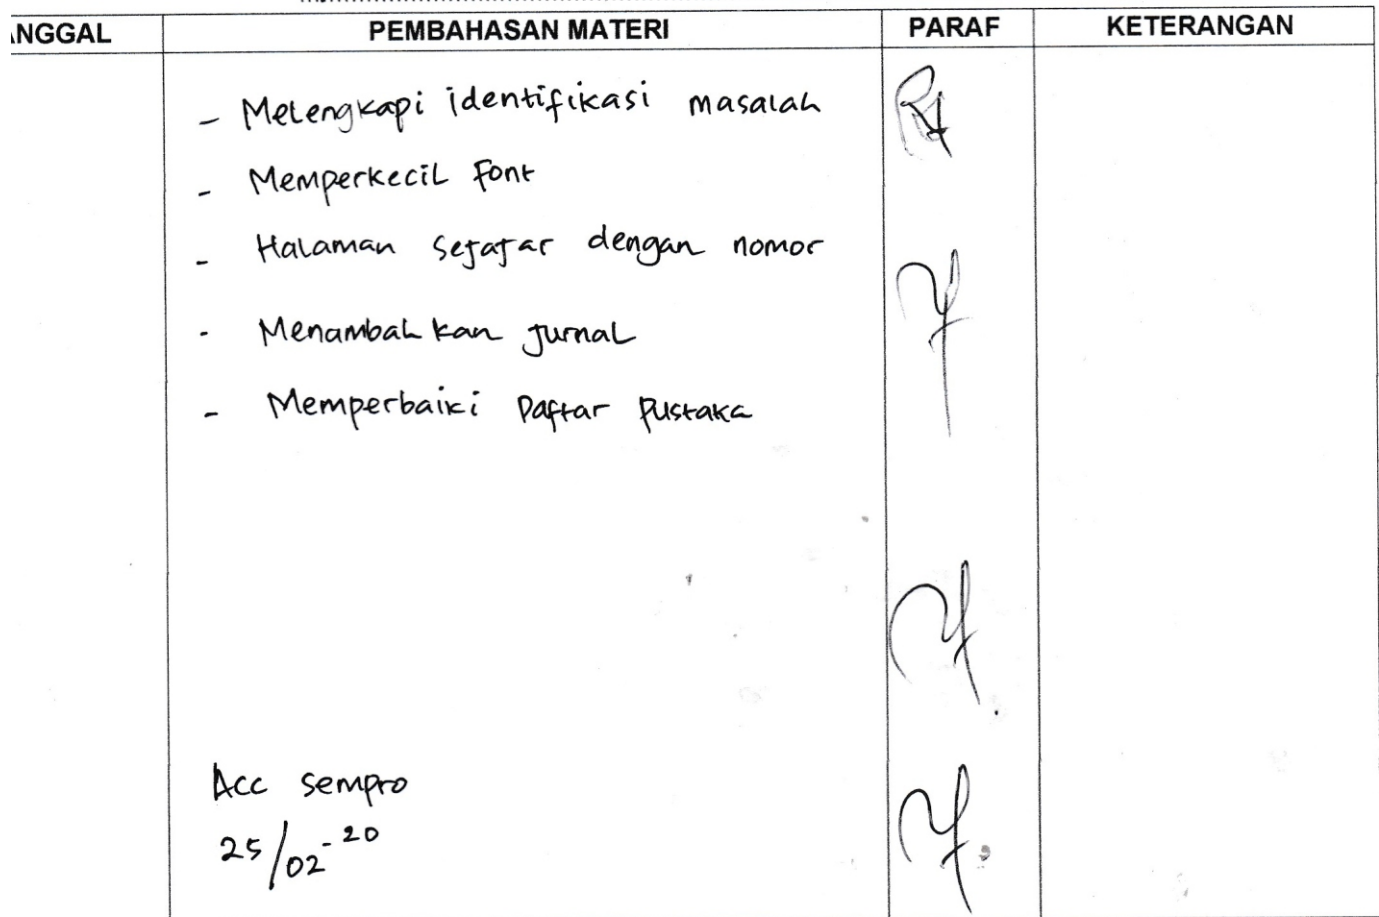 ANGGAL PEMBAHASAN MATERI PARAF KETERANGAN
- Melengkapi identifikasi masalah
- Memperkecil Font
- Halaman sejajar dengan nomor
- Menambahkan jurnal
- Memperbaiki Daftar Pustaka
Acc sempro
25/02-20